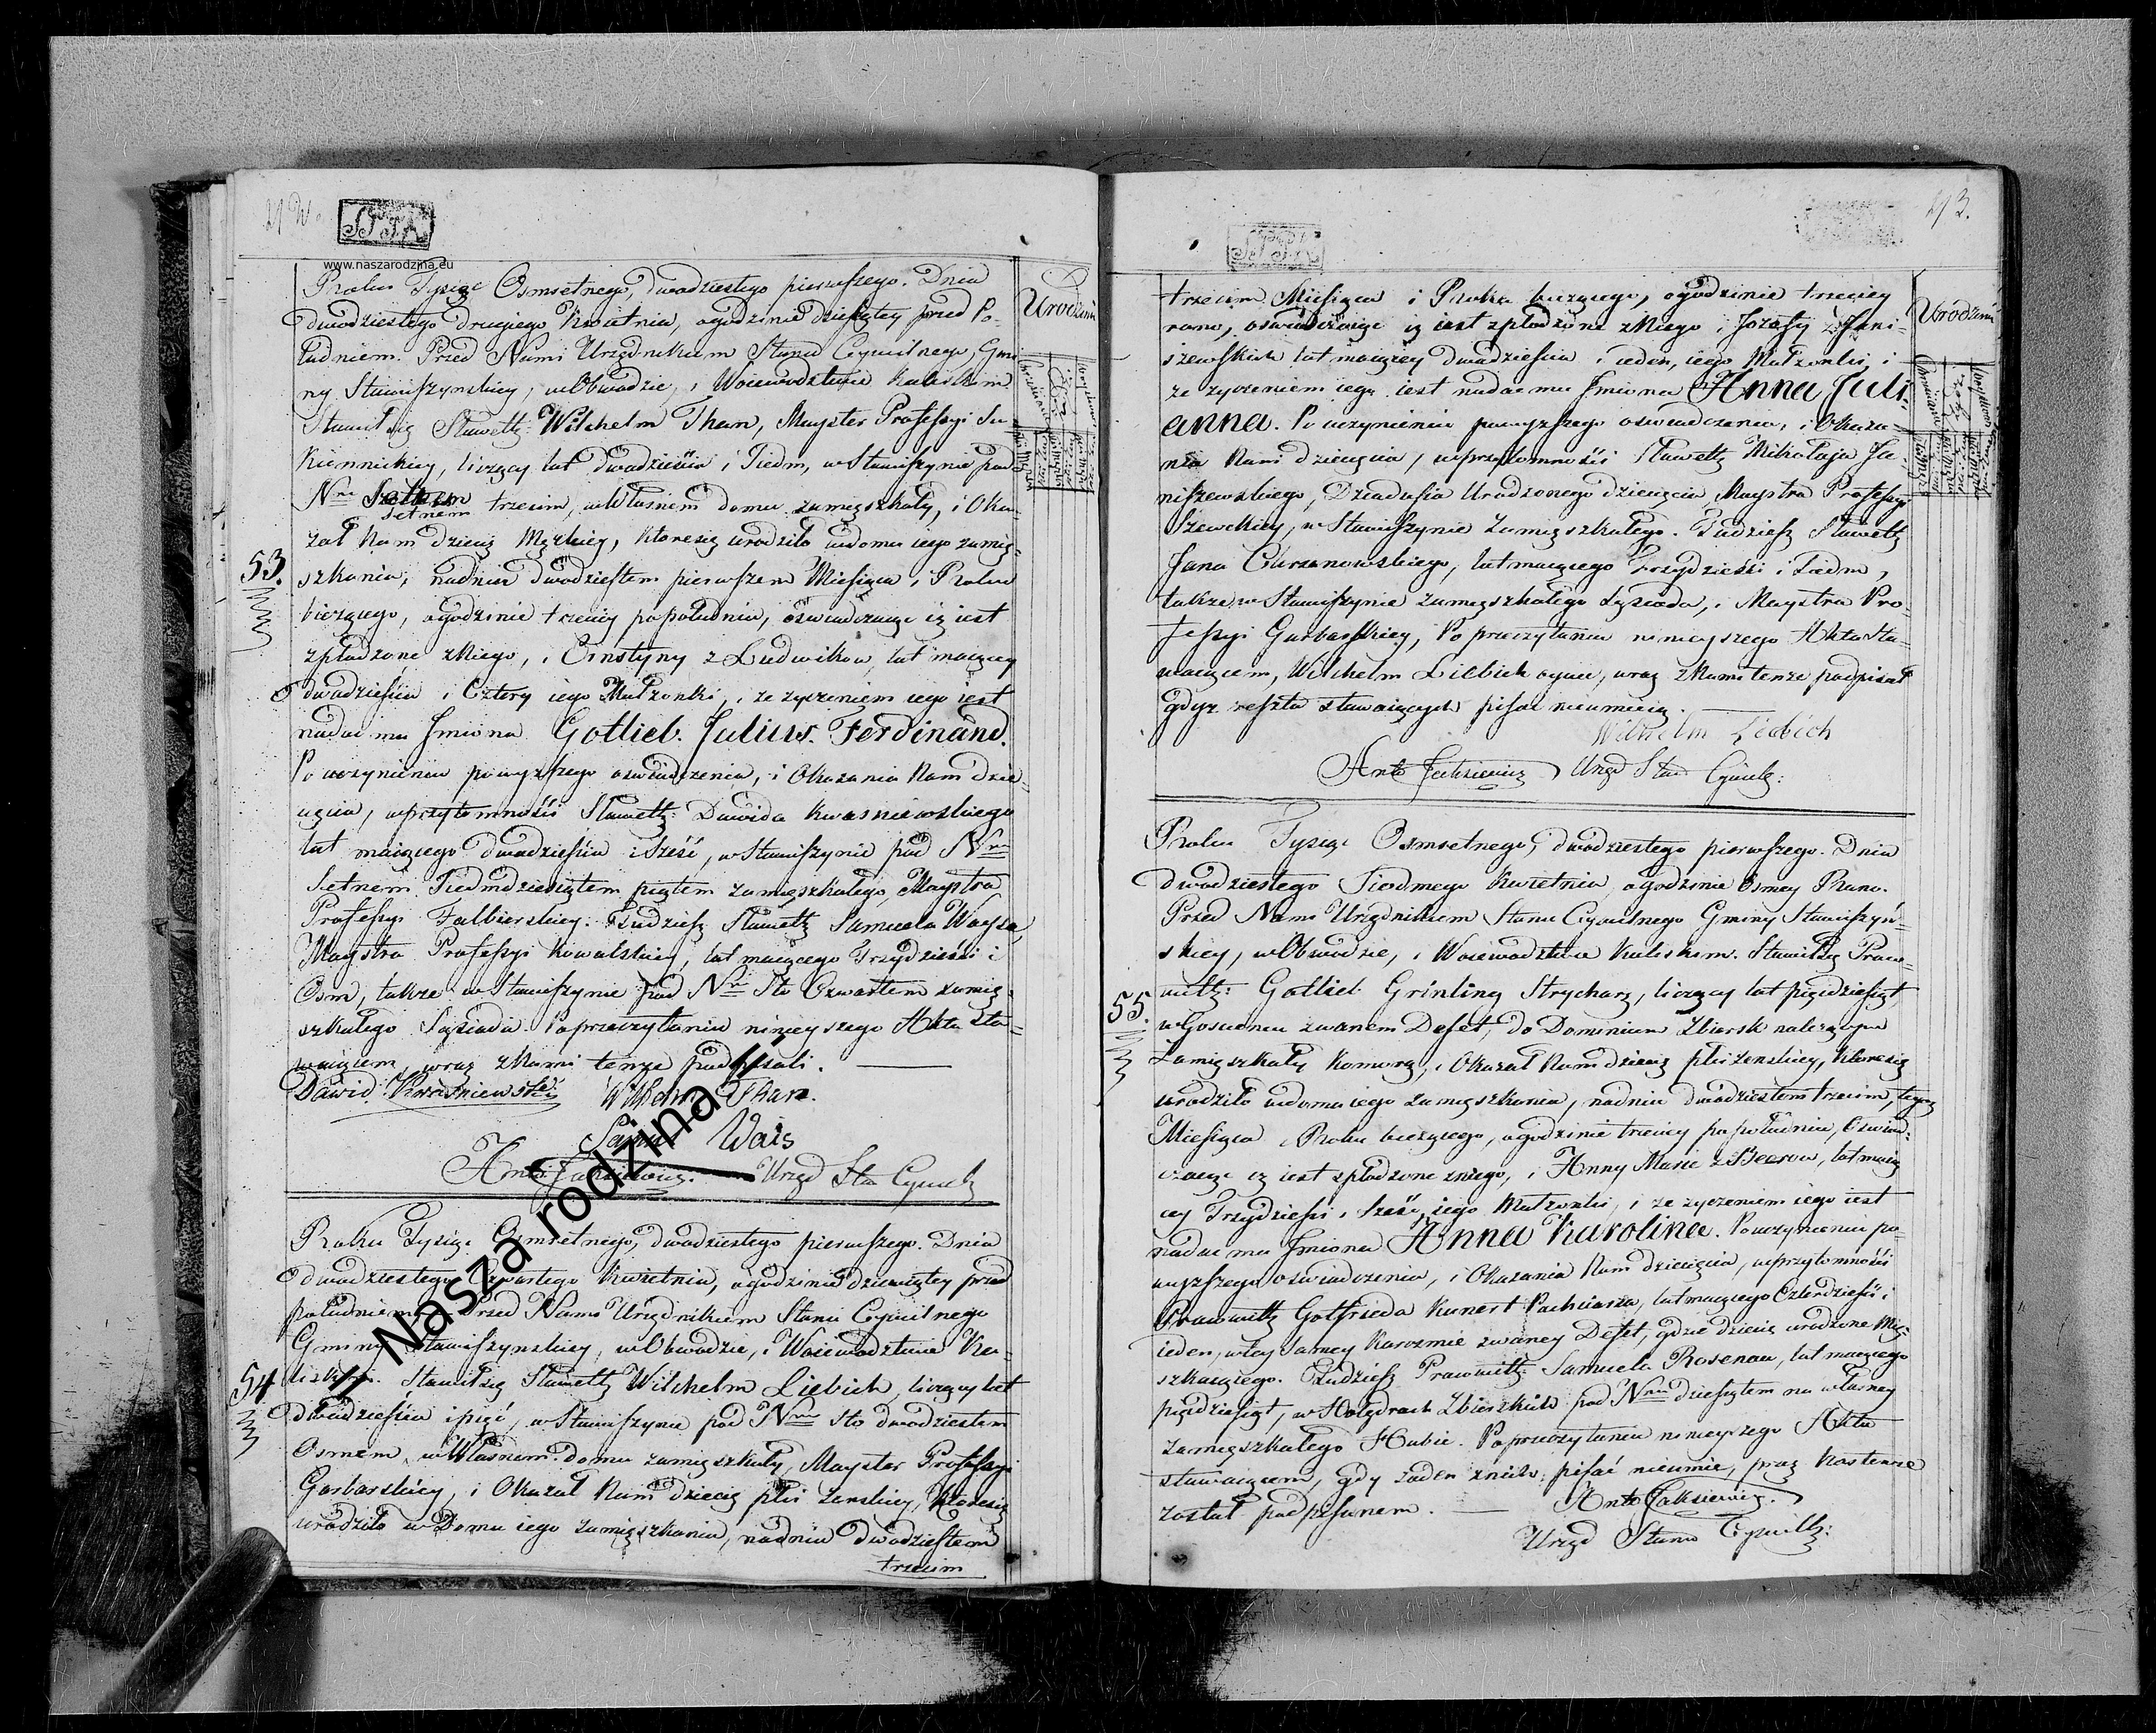 STA
www.naszarodzina.eu
Roku Tysiąc Osmsetnego, dwadziestego pierwszego. Dnia
dwudziestego drugiego Kwietnia, ogodzinie dziesiątey przed Po-
łudniem. Przed Nami Urzędnikiem Stanu Cywilnego, Gmi
ny Stawiszynskiey, wObwodzie, i Woiewodztwie Kaliskim
Stawił się Sławetny Wilhelm Than, Mayster Professyi Su
kiennickiey, liczący lat dwadzieścia i Siedm, w Stawiszynie pod
Nrm setnem trzecim, wWłasnem domu zamięszkały, i Oka-
zał Nam dziecię Męzkiey, ktoresię urodziło wdomu iego zamię-
53.
szkania, nadniu dwadziestem pierwszem Miesiąca i Roku
bieżącego, ogodzinie trzeciey popołudniu, oświadczaiąc iż iest
zpłodzone zNiego, i Ernstyny z Ludwikow, lat maiącey
dwadzieścia i Cztery iego Małżonki, i że życzeniem iego iest
nadać mu Imiona Gotlieb. Julius. Ferdinand.
Po uczynieniu powyższego oświadczenia, i Okazania Nam dzie-
cięcia, wprzytomności Sławetg. Dawida Kwasniewskiego
lat maiącego dwadzieścia i sześć, w Stawiszynie pod Nrm
Setnem Siedmdziesiątem piątem zamięszkałego, Maystra
Professyi Falbierskiey. Tudziesz Sławetg Samuela Waysa,
Maystra Professyi Kowalskiey, lat maiącego Trzydzieści i
Osm, także w Stawiszynie pod Nrm Sto Czwartem zamię-
szkałego Sąsiada. Poprzeczytaniu ninieyszego Aktu Sta-
waiącem, wraz zNami tenże podpisali.
Dawid Kwaśniewski Wilhelm Than.
Samuel Wais
Anto Jaksiewicz. Urzęd Sta Cywil
Roku Tysiąc Osmsetnego, dwadziestego pierwszego. Dnia
dwadziestego Czwartego Kwietnia, ogodzinie dziewiątey przed
południem. Przed Nami Urzędnikiem Stanu Cywilnego
Gminy Stawiszynskiey, wObwodzie, i Woiewodztwie Ka-
54
liskim. Stawił się Sławetg Wilchelm Liebich, liczący lat
dwadzieścia i pięć, w Stawiszynie pod Nrm sto dwadziestem
Osmem, wWłasnem domu zamięszkały, Mayster Professyi
Garbarskiey, i Okazał Nam dziecię płci żenskiey, Ktoresię
urodziło w Domu iego zamięszkania, nadniu dwadziestem
trzecim
Nasza rodzina
Urodzin
93.
trzecim Miesiąca i Roku bieżącego, ogodzinie trzeciey
rano, oświadczaiąc iż iest zpłodzone zNiego i Jozefy z Jani-
szewskich lat maiącey dwadzieścia i ieden, iego Małżonki, i
że życzeniem iego iest nadać mu Imiona Anna Juli-
anna. Po uczynieniu powyższego oświadczenia, i Okaza-
nia Nam dziecięcia, wprzytomności Sławetg Mikołaja Ja
niszewskiego, Dziadusia Urodzonego dziecięcia, Maystra Professyi
Szewckiey, w Stawiszynie zamięszkałego. Tudziesz Sławetg
Jana Chrzanowskiego, lat maiącego Trzydzieści i Siedm,
także w Stawiszynie zamięszkałego Sąsiada, i Maystra Pro-
fessyi Garbarskiey, Po przeczytaniu ninieyszego Aktu Sta-
waiącem, Wilchelm Liebich oyciec, wraz zNami tenże podpisał
gdyż reszta stawaiących pisać nieumieią.
Wilhelm Liebich
Anto Jaksiewicz Urzęd Stan Cywilg:
Urodzin
Roku Tysiąc Osmsetnego, dwadziestego pierwszego. Dnia
dwadziestego Siodmego Kwietnia, ogodzinie Osmey Rano.
Przed Nami Urzędnikiem Stanu Cywilnego Gminy Stawiszyń-
skiey, wObwodzie, i Woiewodztwie Kaliskim. Stawił się Praco-
witg: Gotlieb Grinling Strycharz, liczący lat pięćdziesiąt,
55.
wGościńcu zwanem Deset, do Dominium Zbiersk należącym
Zamięszkały Komorą, i Okazał Nam dziecię płci żenskiey, Ktoresię
urodziło wdomu iego zamięszkania, nadniu dwadziestem trzecim, tegoż
Miesiąca i Roku bieżącego, ogodzinie trzeciey popołudniu, Oświad-
czaiąc iż iest zpłodzone zniego, i Anny Marie z Beerow, lat maią
cey Trzydzieści i Sześć, iego Małżonki, i że życzeniem iego iest
nadać mu Imiona Anna Karolina. Pouczynieniu po-
wyższego oświadczenia, i Okazania Nam dziecięcia, wprzytomności
Pracowitg Gotfrieda Kunert Pachciarza, lat maiącego Czterdzieści i
ieden, wtey samey Karczmie zwaney Deset, gdzie dziecię urodzone Mię-
szkaiącego. Tudziesz Pracowitg Samuela Rosenau, lat maiącego
pięćdziesiąt, w Holędrach Zbierskich pod Nrm dziesiątem na własney
zamięszkałego Hubie. Poprzeczytaniu ninieyszego Aktu
stawaiącem, gdy żaden znich pisać nieumie, przez Nas tenże
został podpisanem. Anto Jaksiewicz.
Urzęd Stanu Cywillg: